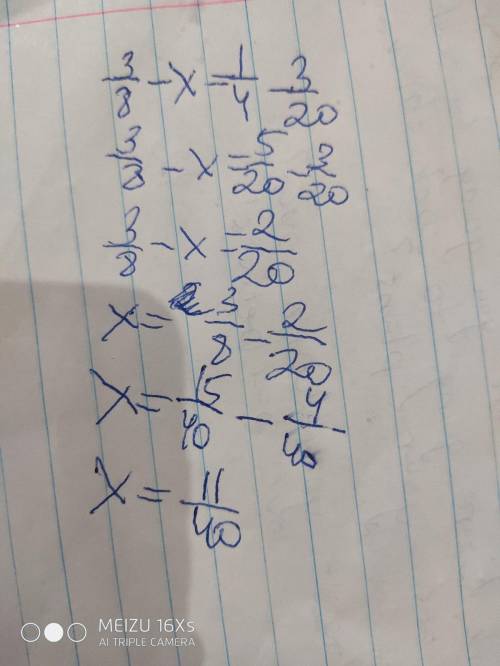 3/8 - x = 1/4 - 3/20
3/8 - x = 5/20 - 3/20
3/8 - x = 2/20
x = 3/8 - 2/20
x = 15/40 - 4/40
x = 11/40
MEIZU 16Xs
AI TRIPLE CAMERA